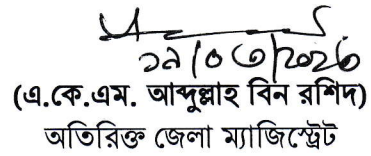 ১৯/০৩/২০২৬
(এ.কে.এম. আব্দুল্লাহ বিন রশিদ)
অতিরিক্ত জেলা ম্যাজিস্ট্রেট